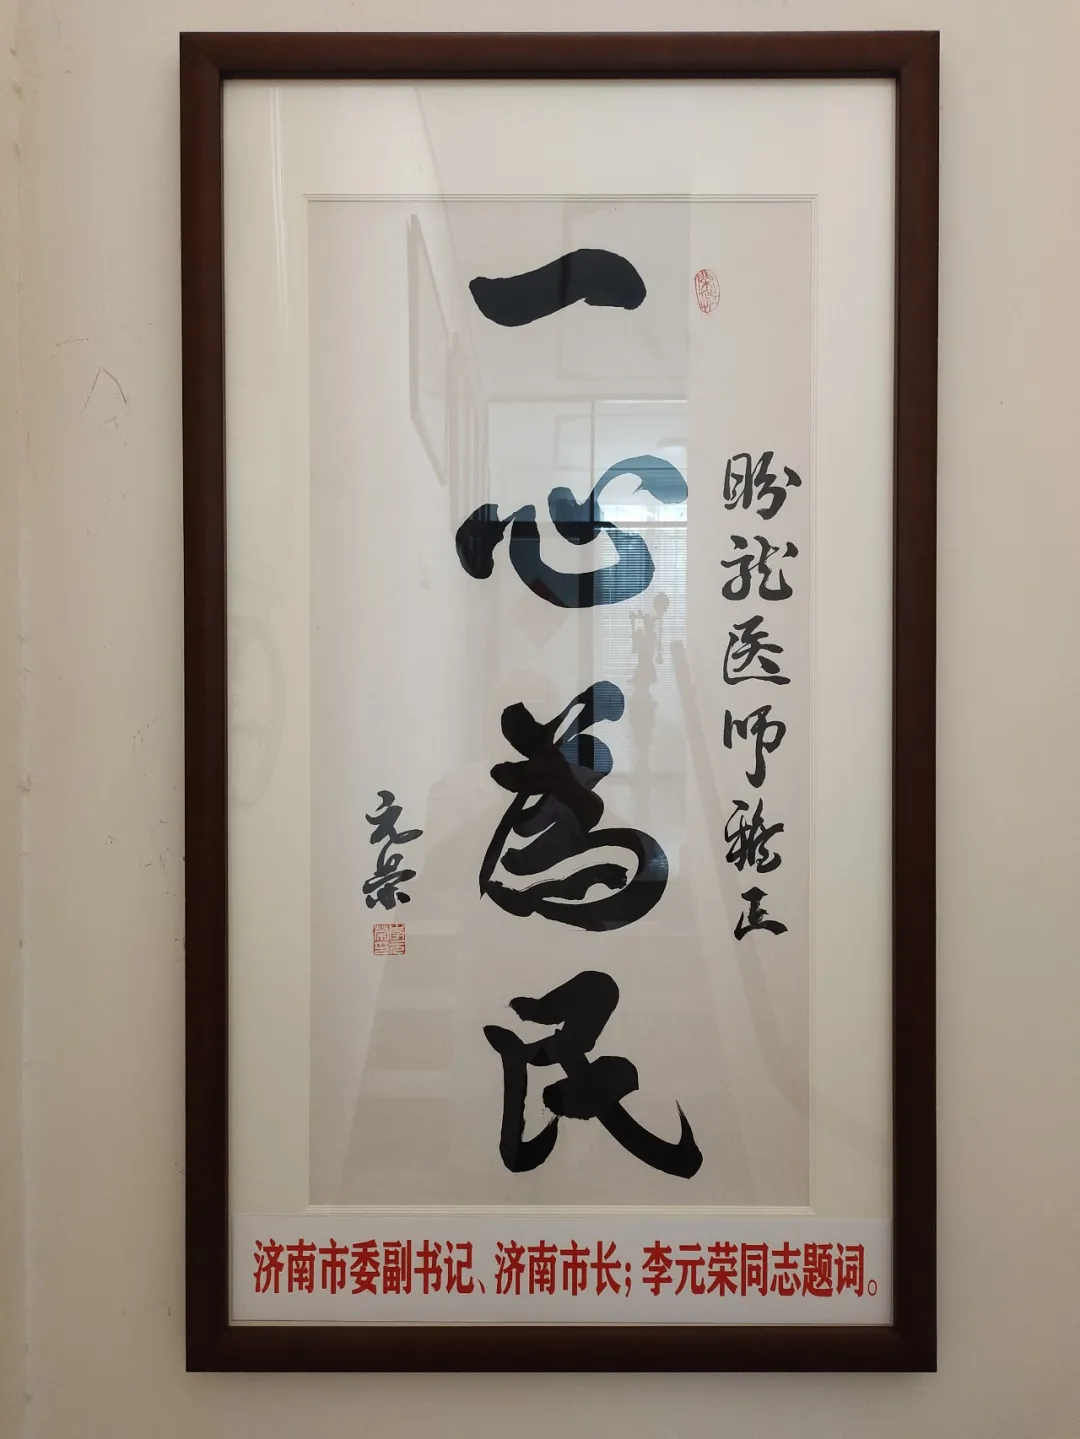 一心為民
盼龙医师雅正
元榮
李元榮印
济南市委副书记、济南市长；李元荣同志题词。